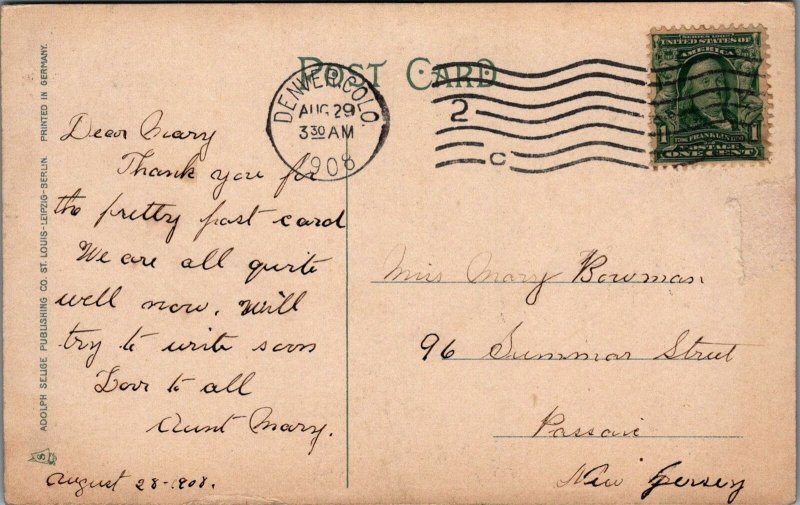 POST CARD
ADOLPH SELIGE PUBLISHING CO. ST. LOUIS-LEIPZIG-BERLIN. PRINTED IN GERMANY.
DENVER, COLO.
AUG 29
3 30 AM
1908
2
C
SERIES 1902
UNITED STATES OF
AMERICA
FRANKLIN
1 1
POSTAGE
ONE CENT
Dear Mary
Thank you for
the pretty post card
We are all quite
well now. Will
try to write soon
Love to all
Aunt Mary.
August 28-1908.
Miss Mary Bowman
96 Summar Street
Passaic
New Jersey